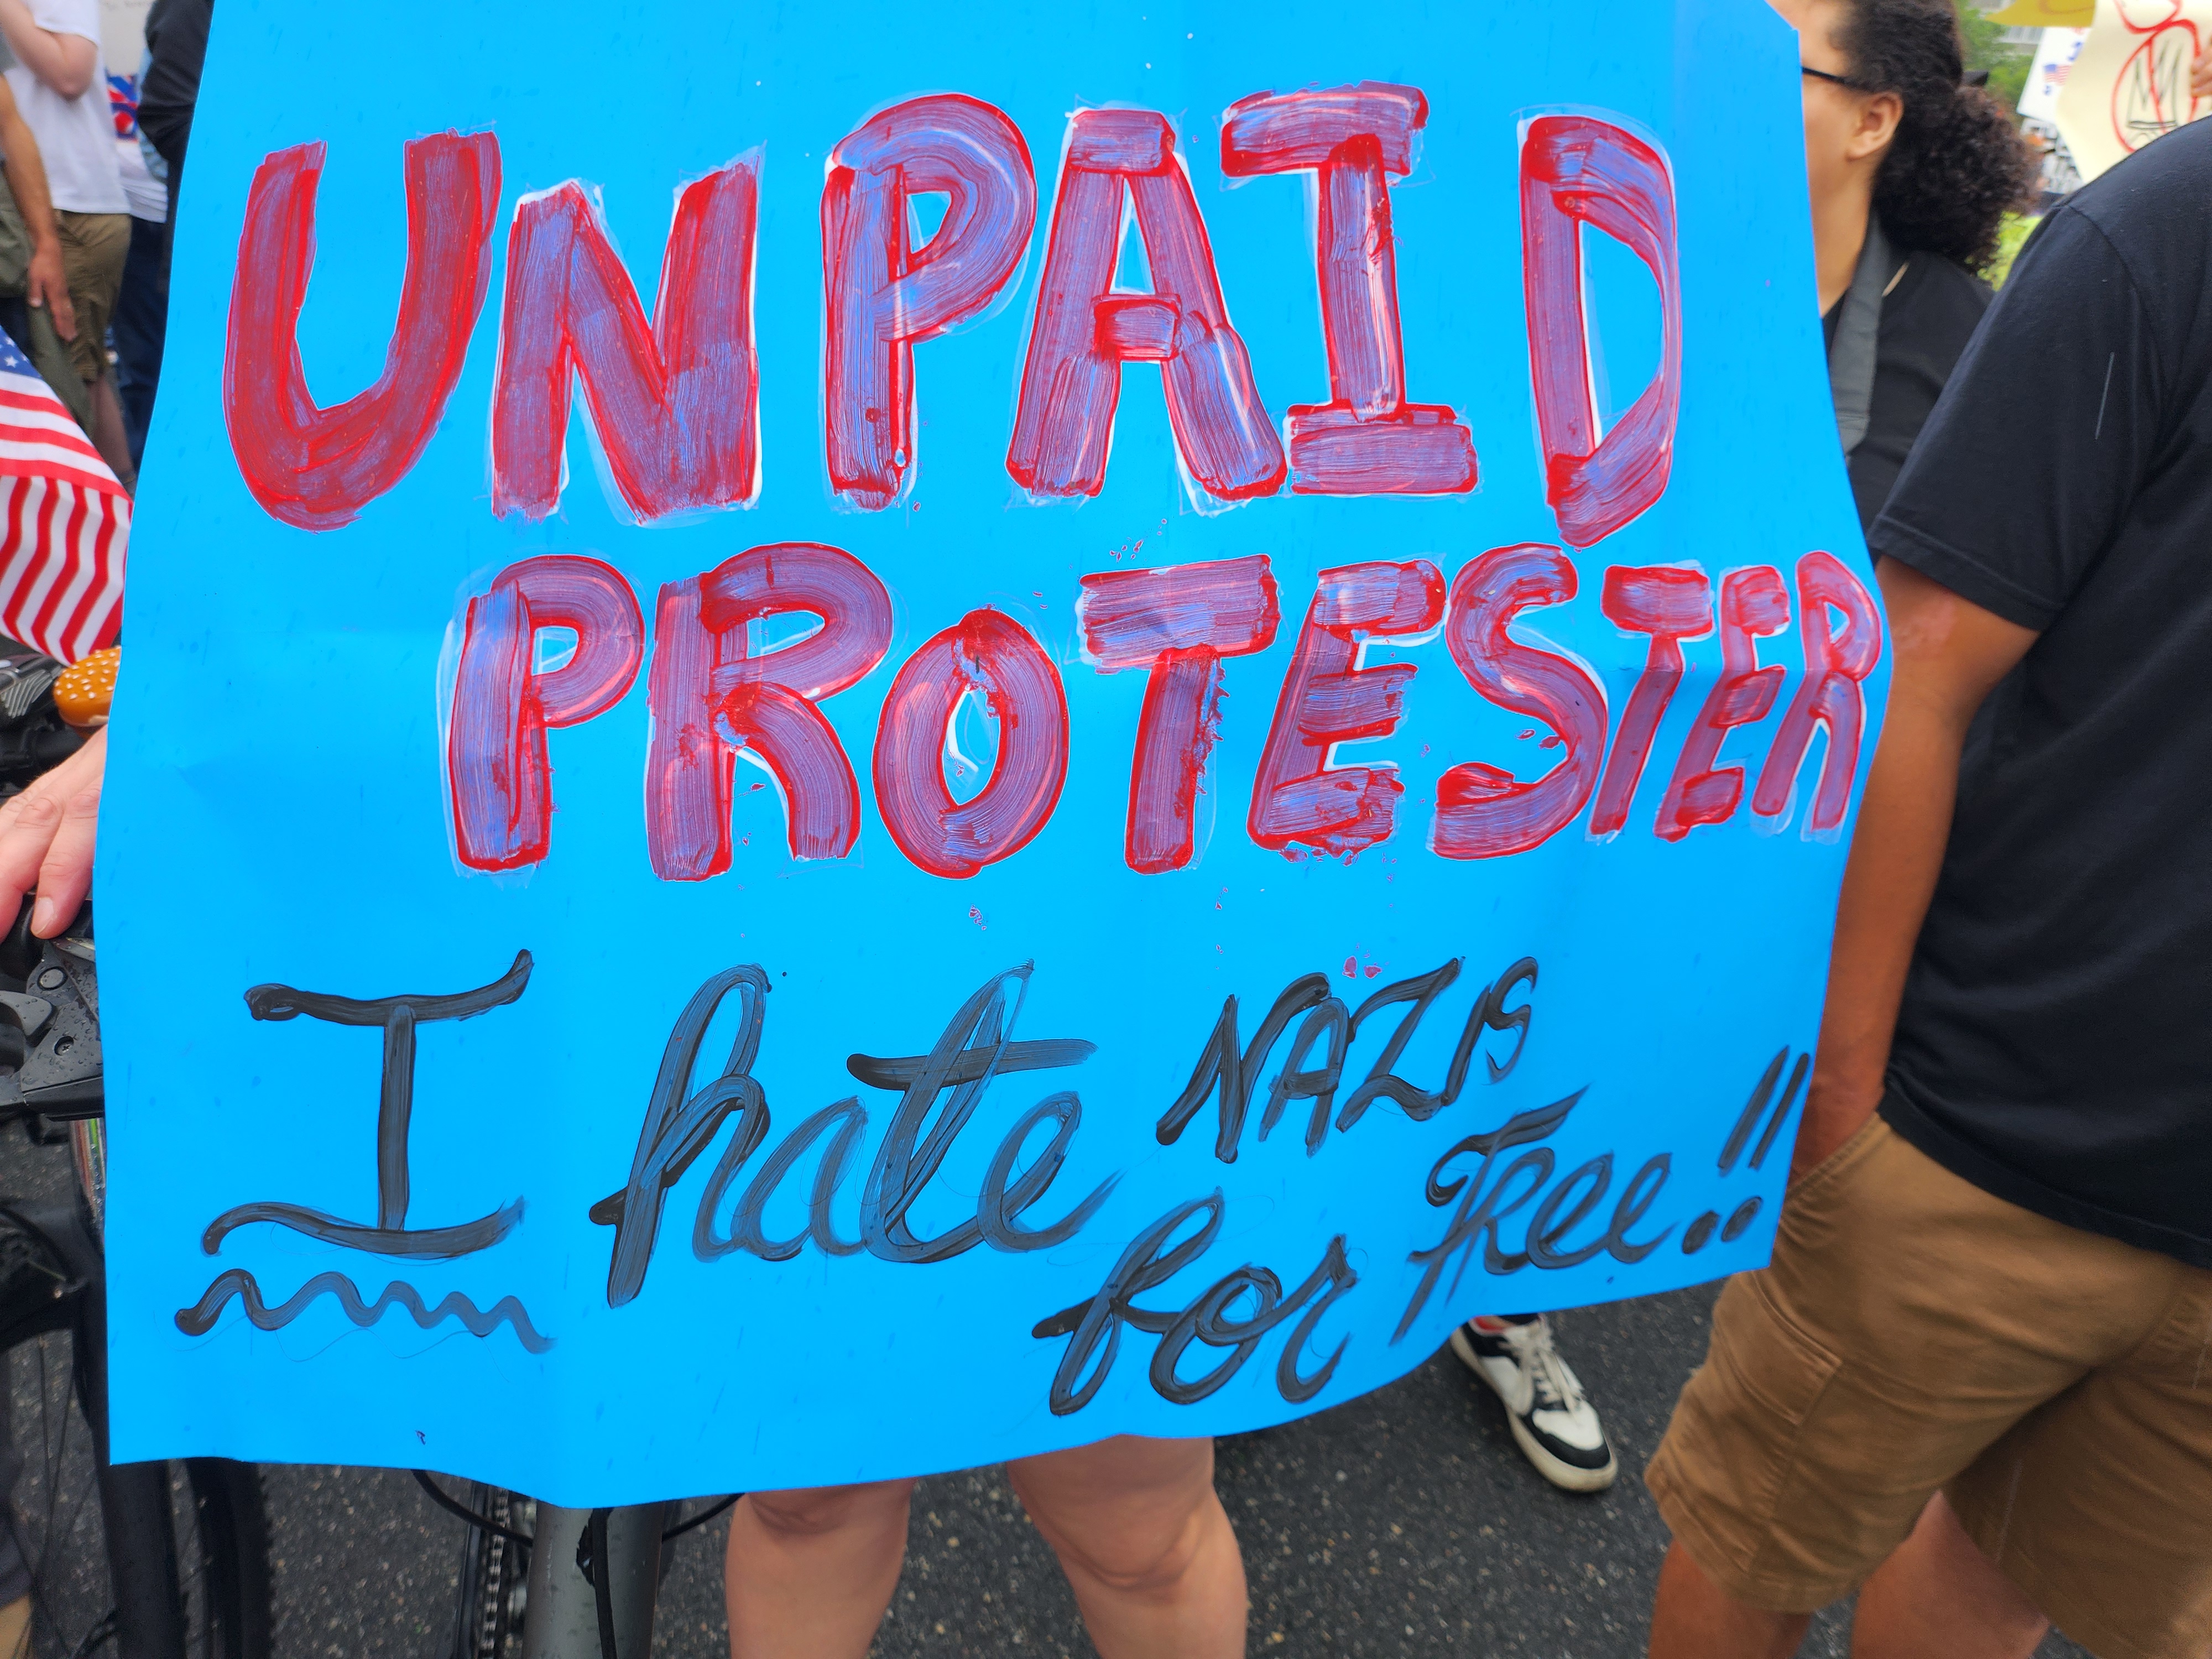 UNPAID
PROTESTER
I hate NAZIS
for free!!